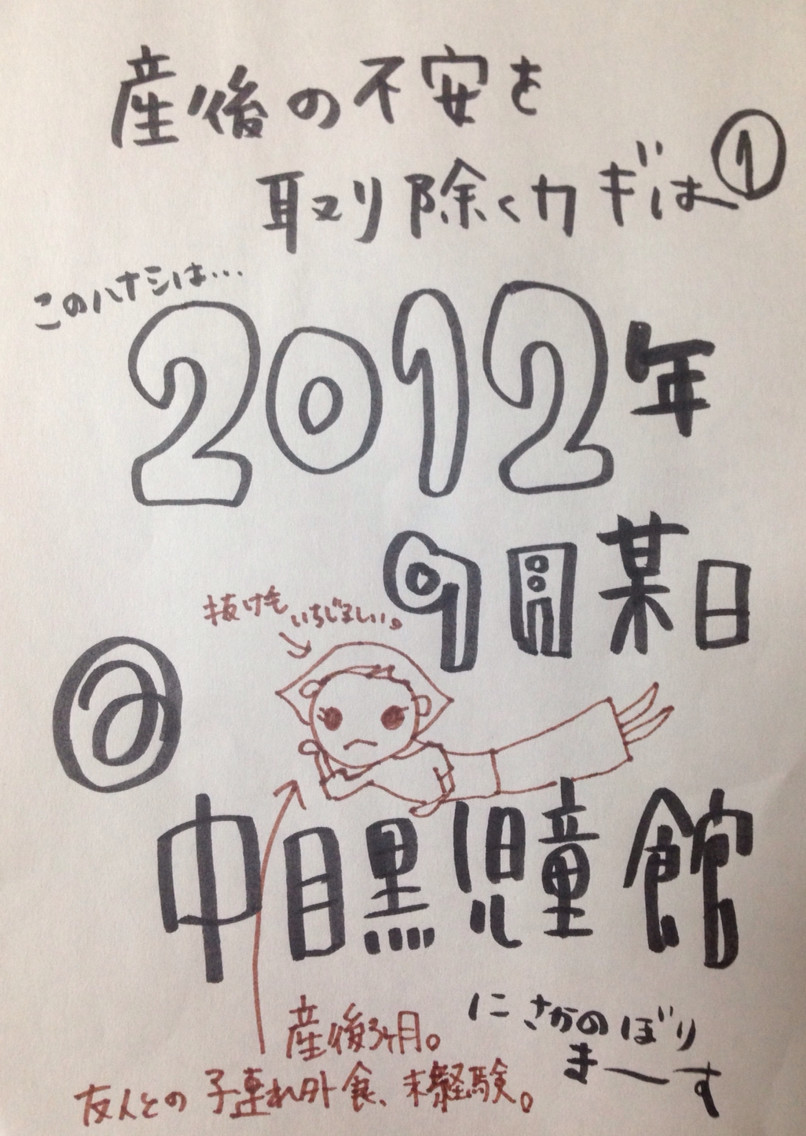 産後の不安を
取り除くカギは①
このハナシは…
2012年
9月某日
抜け毛
いちじるしい。
@
中目黒児童館
にさかのぼり
ま〜す
産後3ヶ月。
友人との子連れ外食、未経験。